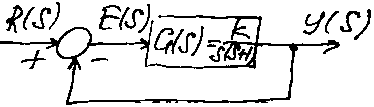 R(S) E(S) G(S) = K/S(S+1) Y(S)
+ -